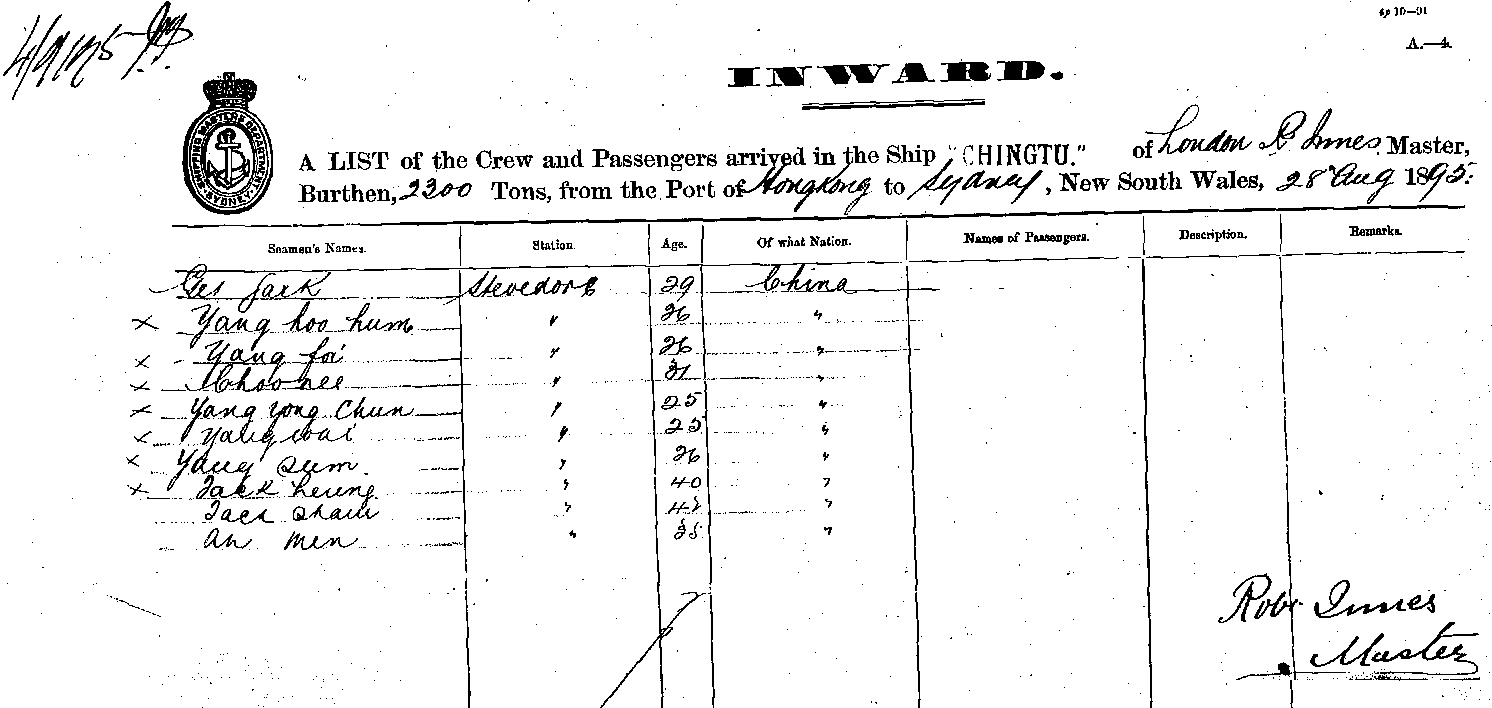 4/9/1895
4p 10—91
A.—4.
INWARD.
SHIPPING MASTERS DEPARTMENT
SYDNEY
A LIST of the Crew and Passengers arrived in the Ship "CHINGTU." of London R Innes Master,
Burthen, 2300 Tons, from the Port of Hongkong to Sydney, New South Wales, 28 Aug 1895.
Seamen's Names. Station. Age. Of what Nation. Names of Passengers. Description. Remarks.
Stevedore 29 China
x Yang hoo hum " 26 "
x Yang foi " 26 "
x " 31 "
x Yang yong Chun " 25 "
x Yang wai " 25 "
x Yang Sum " 26 "
x Jack heung " 40 "
Jack " "
an men " "
Robt Innes
Master